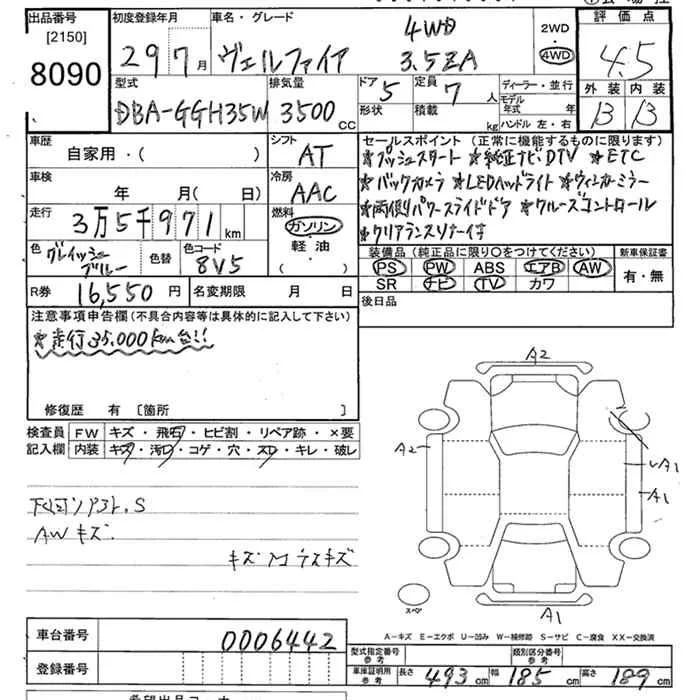 出品番号
[2150]
8090
初度登録年月
29年7月
車名・グレード
ヴェルファイア
4WD
3.5ZA
2WD
4WD
評価点
4.5
外装 内装
B B
型式
DBA-GGH35W
排気量
3500cc
ドア
5
形状
定員
7人
積載
kg
ディーラー・並行
モデル年式 年
ハンドル 左・右
車歴
自家用・( )
シフト
AT
車検
年 月( 日)
冷房
AAC
走行
3万5千971km
燃料
ガソリン
軽・油
( )
色
グレイッシュブルー
色替
色コード
8V5
R券 16,550円
名変期限 月 日
セールスポイント(正常に機能するものに限ります)
★プッシュスタート ★純正ナビ・DTV ★ETC
★バックカメラ ★LEDヘッドライト ★ウィンカーミラー
★両側パワースライドドア ★クルーズコントロール
★クリアランスソナー付
装備品(純正品に限り○をつけてください)
PS PW ABS エアB AW
SR ナビ TV カワ
新車保証書
有・無
後日品
注意事項申告欄(不具合内容等は具体的に記入して下さい)
★走行35,000km台!!
修復歴 有 [箇所 ]
検査員記入欄
FW キズ・飛石・ヒビ割・リペア跡・×要
内装 キズ・汚レ・コゲ・穴・スレ・キレ・破レ
AWキズ
A2
A2
A1
A1
A1
スペア
A-キズ E-エクボ U-凹み W-補修跡 S-サビ C-腐食 XX-交換済
車台番号 0006442
登録番号
型式指定番号 参考
類別区分番号 参考
車庫証明用 参考
長さ 493cm 幅 185cm 高さ 189cm
希望出品コーナー